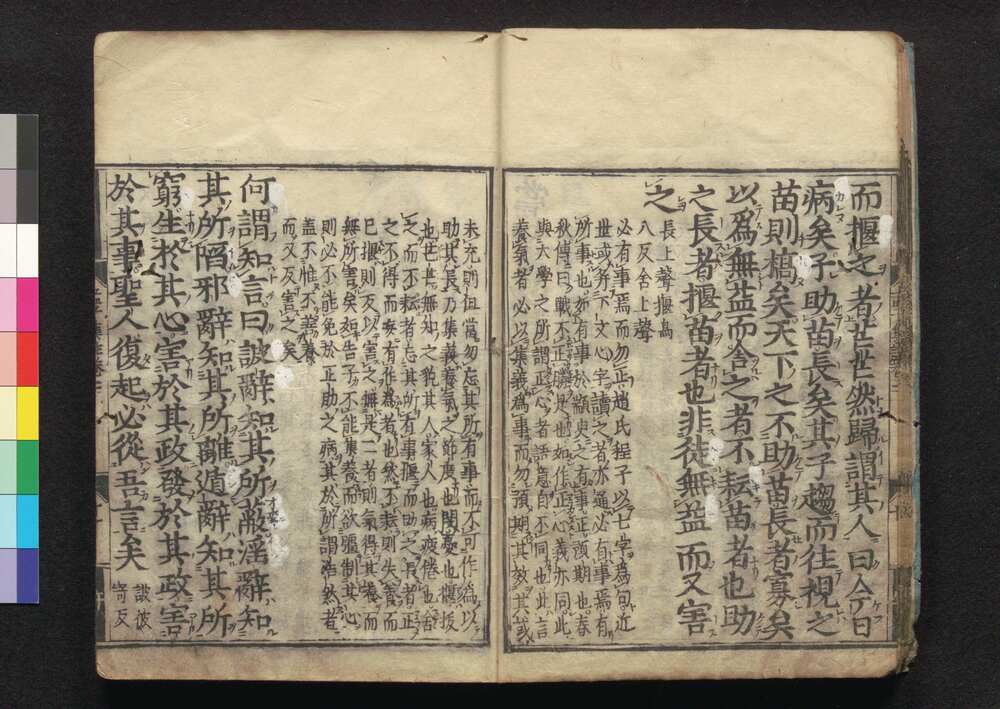 而揠之者芒芒然歸謂其人曰今日
病矣予助苗長矣其子趨而往視之
苗則槁矣天下之不助苗長者寡矣
以爲無益而舍之者不耘苗者也助
之長者揠苗者也非徒無益而又害
之
長上聲揠烏
八反舍上聲
必有事焉而勿正趙氏程子以七字爲句近
世或幷下文心字讀之者亦通必有事焉有
所事也如有事於顓臾之有事正預期也春
秋傳曰戰不正勝是也如作正心義亦同此
與大學之所謂正心者語意自不同也此言
養氣者必以集義爲事而勿預期其效其或
未充則但當勿忘其所有事而不可作爲以
助其長乃集義養氣之節度也閔憂也揠拔
也芒芒無知之貌其人家人也病疲倦也舍
之而不耘者忘其所有事揠而助之長者正
之不得而妄有作爲者也然不耘則失養而
已揠則反以害之無是二者則氣得其養而
無所害矣如告子不能集義而欲彊制其心
則必不能免於正助之病其於所謂浩然者
蓋不惟不善養
而又反害之矣
何謂知言曰詖辭知其所蔽淫辭知
其所陷邪辭知其所離遁辭知其所
窮生於其心害於其政發於其政害
於其事聖人復起必從吾言矣
詖彼
寄反